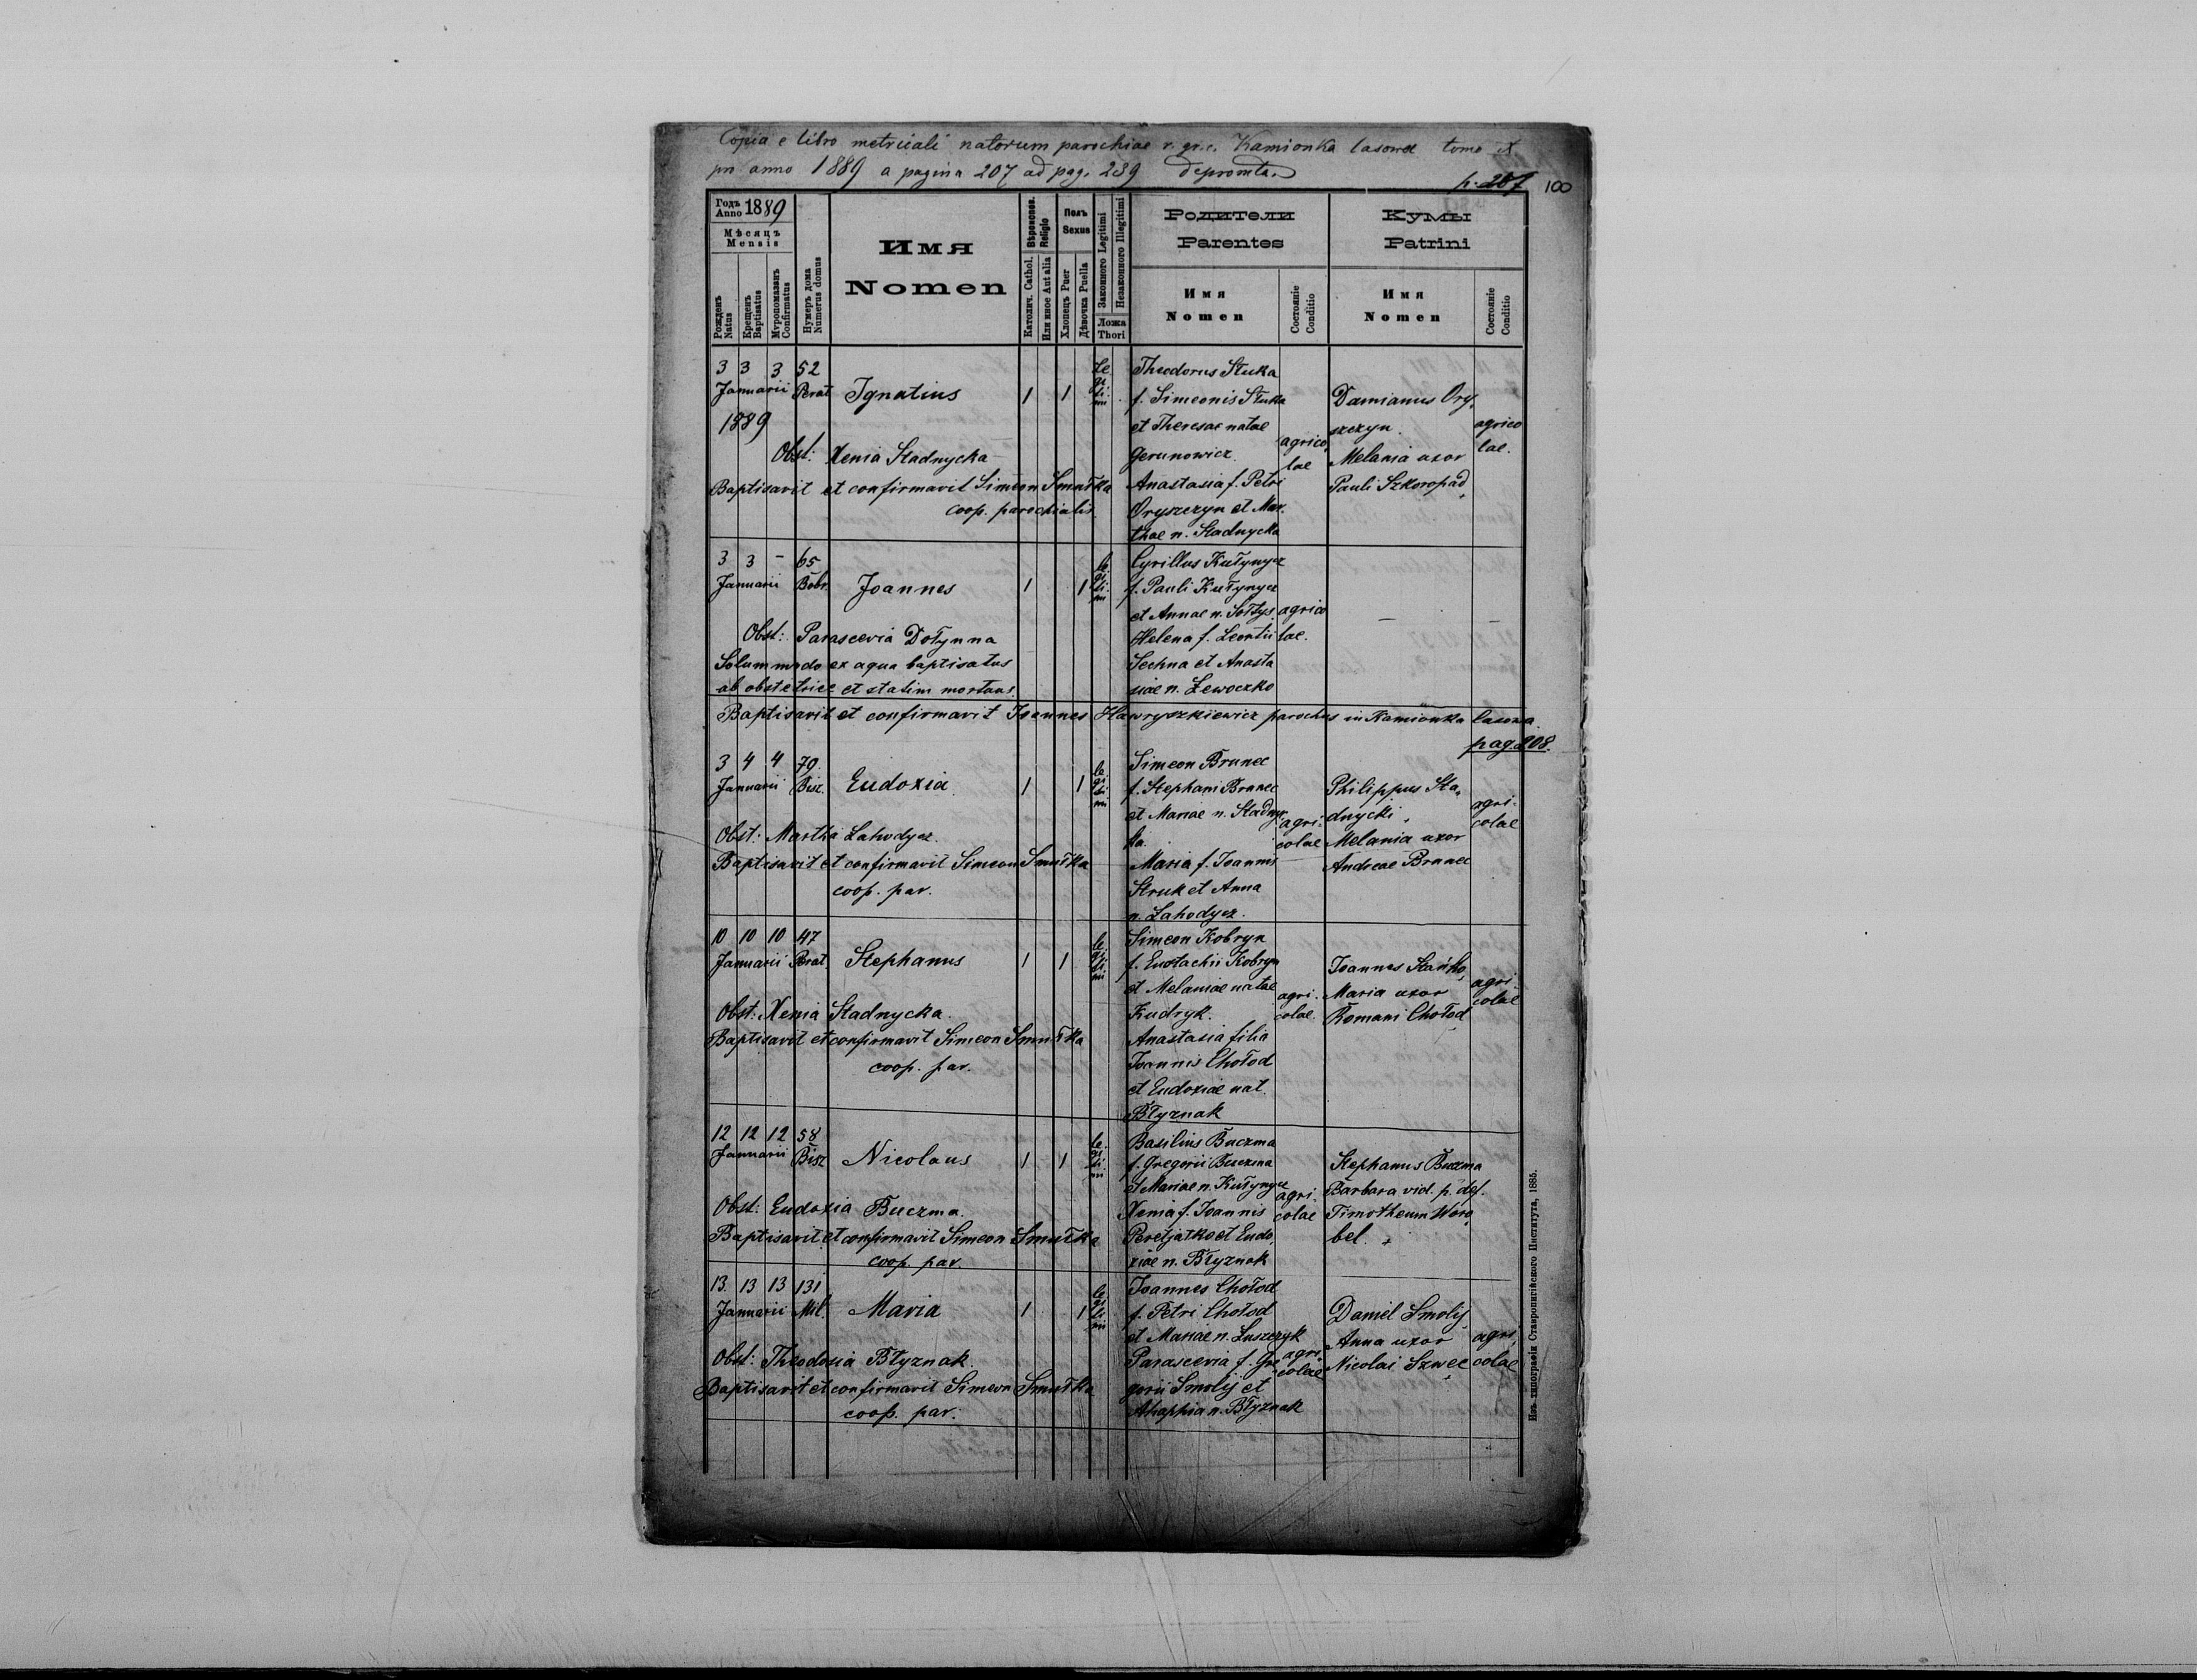 Copia e libro metricali natorum parochiae r. gr. c. Kamionka lasowa tomo X.
pro anno 1889 a pagina 207 ad pag. 239 depromta.
p. 207 100
Годъ Anno 1889
Мѣсяцъ
Mensis
Рожденъ Natus
Крещенъ Baptisatus
Мѵропомазанъ Confirmatus
Нумеръ дома Numerus domus
Имя
Nomen
Вѣроисповѣд. Religio
Католич. Cathol.
Или иное Aut alia
Полъ
Sexus
Хлопецъ Puer
Дѣвочка Puella
Законного Legitimi
Незаконного Illegitimi
Ложа
Thori
Родители
Parentes
Имя
Nomen
Состояніе
Conditio
Кумы
Patrini
Имя
Nomen
Состояніе
Conditio
3 3 3 52
Januarii Perat
1889
Ignatius
1 1
Le
gi
ti.
mi
Obst: Xenia Stadnycka
Baptisavit et confirmavit Simeon Smutka
coop. parochialis.
Theodorus Stuka
f. Simeonis Stuka
et Theresae natae
Gerunowicz.
Anastasia f. Petri
Oryszczyn et Mar.
thae n. Stadnycka
agrico
lae
Damianus Ory,
szczyn.
Melania uxor
Pauli Szkoropad
agrico
lae.
3 3 - 65
Januarii Bobr.
Joannes
1 1
le
gi
ti.
mi
Obst: Parascevia Dołynna
Solummodo ex aqua baptisatus
ab obstetrice et statim mortuus.
Cyrillus Kułynycz
f. Pauli Kułynycz
et Annae n. Sołtys
Helena f. Leontii
Sechna et Anasta
siae n. Lewoczko
agrico
lae.
- -
Baptisavit et confirmavit Joannes Hawryszkiewicz parochus in Kamionka lasowa.
pag. 208.
3 4 4 79.
Januarii Bisz.
Eudoxia
1 1
le
gi
ti.
mi
Obst: Martha Lahodycz.
Baptisavit et confirmavit Simeon Smutka
coop. par.
Simeon Brunec
f. Stephani Brunec
et Mariae n. Stadnyc
ka.
Maria f. Joannis
Struk et Anna
n. Lahodycz.
agri.
colae
Philippus Sta,
dnycki,
Melania uxor
Andreae Brunec
agri.
colae
10 10 10 47
Januarii Perat
Stephanus
1 1
le
gi
ti.
mi
Obst: Xenia Stadnycka.
Baptisavit et confirmavit Simeon Smutka
coop. par.
Simeon Kobryn
f. Eustachii Kobryn
et Melaniae natae
Kudryk.
Anastasia filia
Joannis Chołod
et Eudoxiae nat.
Błyznak
agri.
colae.
Joannes Stańko,
Maria uxor
Romani Chołod
agri.
colae
12 12 12 58
Januarii Bisz
Nicolaus
1 1
le.
gi
ti.
mi
Obst: Eudoxia Buczma.
Baptisavit et confirmavit Simeon Smutka
coop. par.
Basilius Buczma
f. Gregorii Buczma
et Mariae n. Kułynycz
Xenia f. Joannis
Peretjatko et Eudo,
xiae n. Błyznak
agri.
colae
Stephanus Buczma
Barbara vid. p. def.
Timotheum Woro,
bel.
13. 13 13 131
Januarii Mil.
Maria
1 1
le
gi
ti.
mi
Obst: Theodosia Błyznak.
Baptisavit et confirmavit Simeon Smutka
coop. par.
Joannes Chołod
f. Petri Chołod
et Mariae n. Luszczyk
Parascevia f. Gre
gorii Smolij et
Ahaphia n. Błyznak
agri.
colae
Daniel Smolij,
Anna uxor
Nicolai Szwec
agri,
colae
Изъ типографіи Ставропигійского Института, 1885.